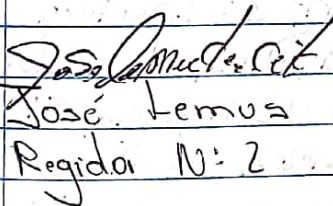 José Lemus
Regidor N: 2.